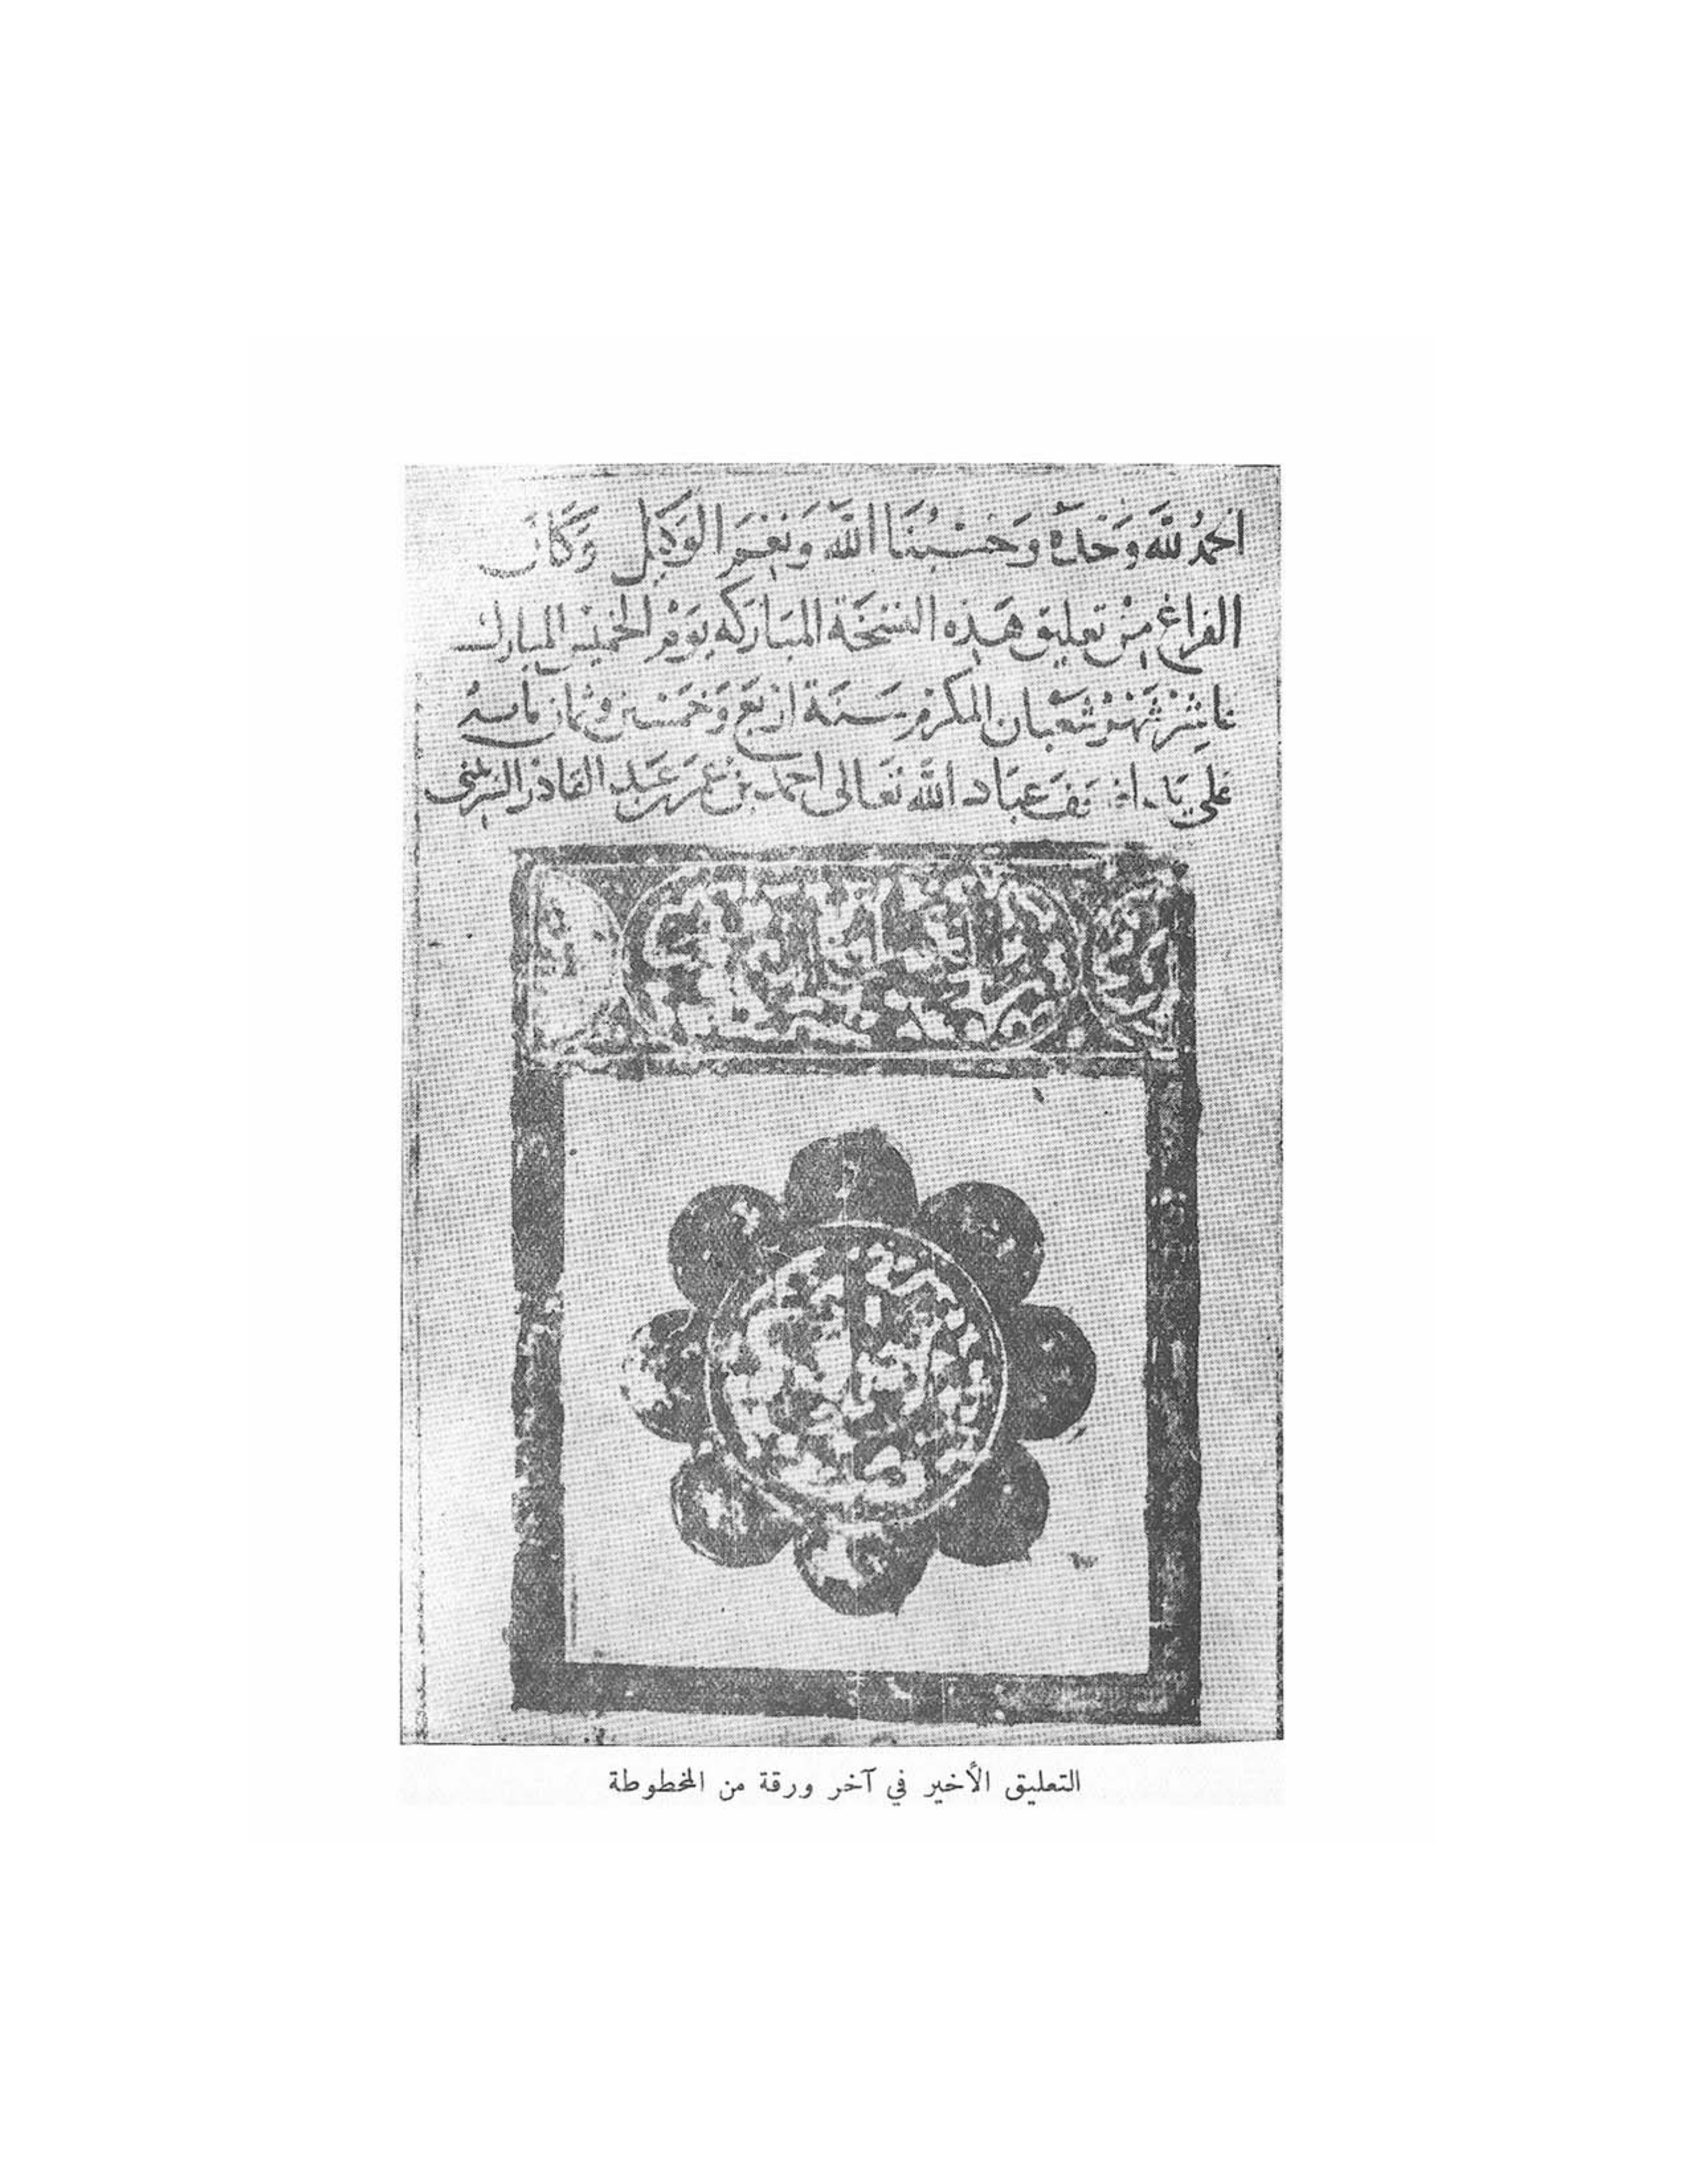 الحمدُ لله وَحْدَهُ وَحَسْبُنَا اللهُ وَنِعْمَ الوَكِيل وَكَانَ
الفراغ مِنْ تعليق هَذِه النسْخَة المبَاركَه يَوْمَ الخميس المبارك
عاشِرْ شَهْر شَعْبان المكرم سَنَة ارْبَع وَخَمْسين وثمان مايه
عَلي يَد اضعَف عبَاد الله تعَالى احمد بْن عُمَر عَبْد القادر
التعليق الأخير في آخر ورقة من المخطوطة